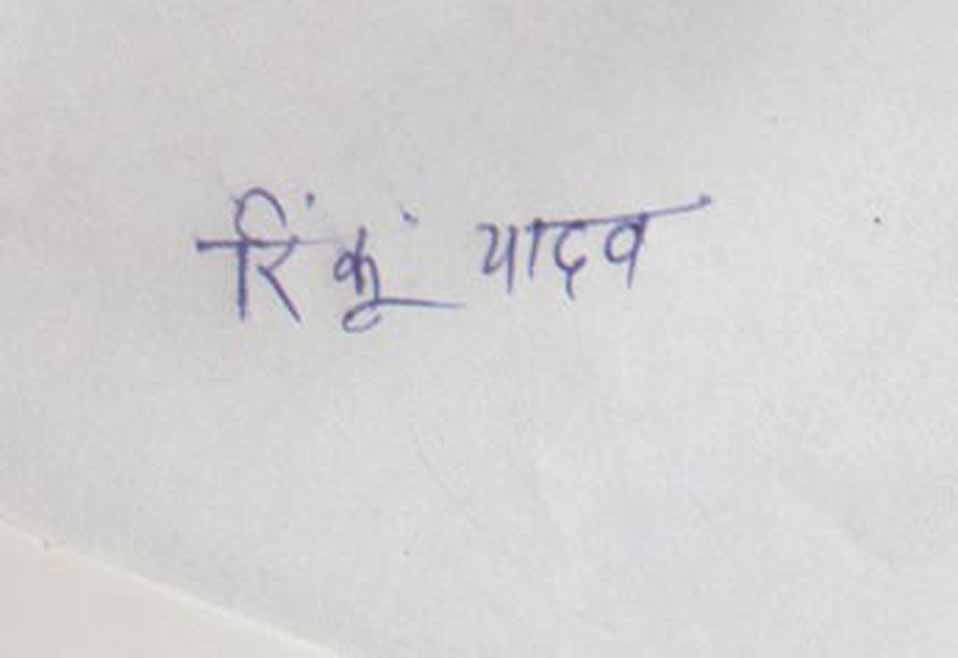 रिंकूं यादव